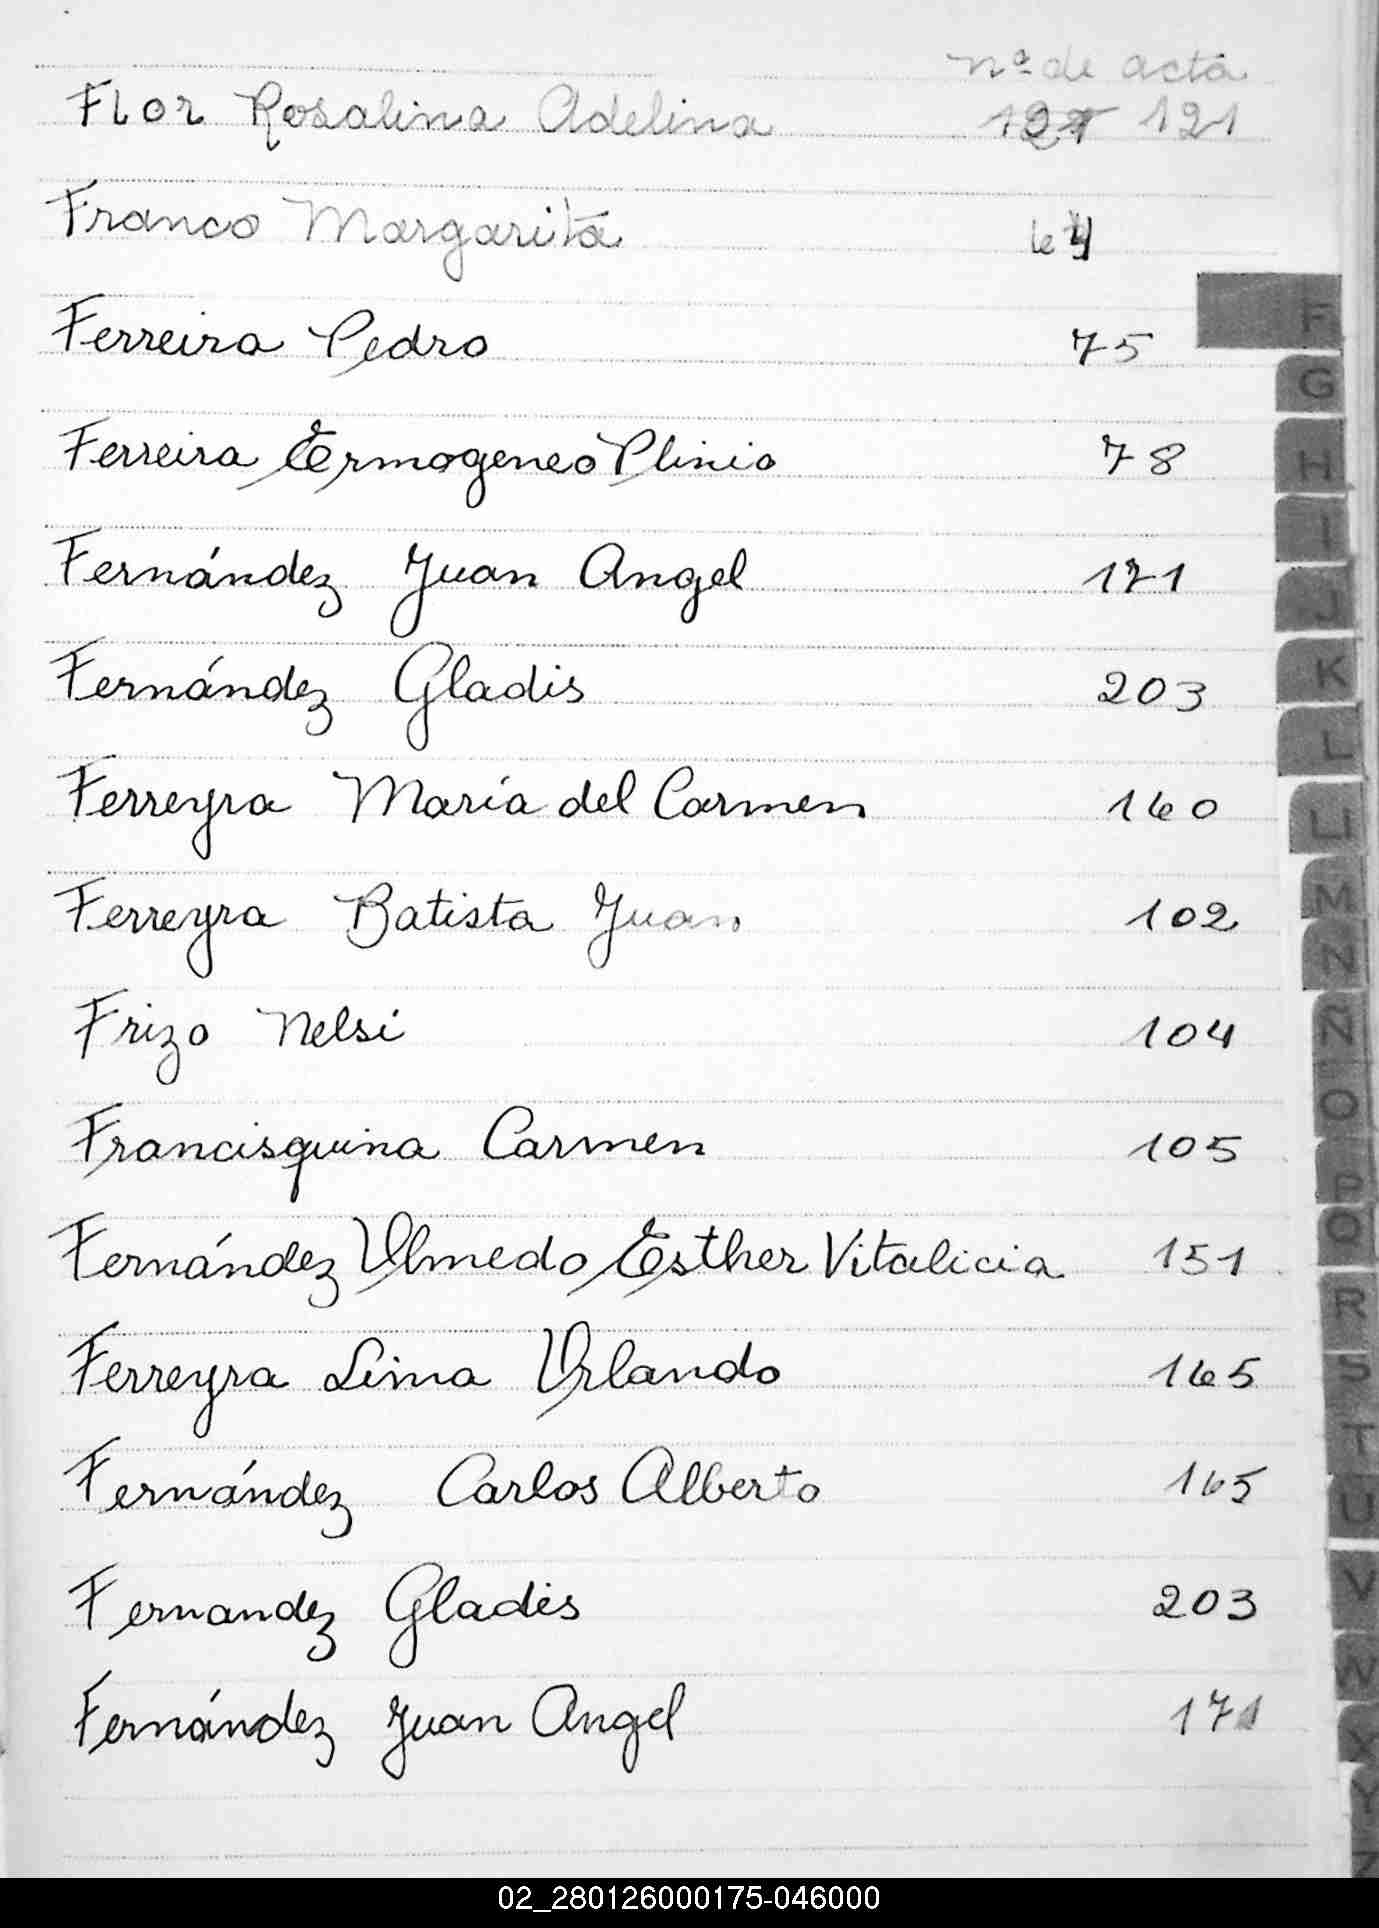 nº de acta
Flor Rosalina Adelina 121
Franco Margarita
Ferreira Pedro 75
Ferreira Ermogenes Plinio 78
Fernández Juan Angel 171
Fernández Gladis 203
Ferreyra María del Carmen 160
Ferreyra Batista Juan 102
Frizo Nelsi 104
Francisquina Carmen 105
Fernández Olmedo Esther Vitalicia 151
Ferreyra Lima Orlando 165
Fernández Carlos Alberto 165
Fernandez Gladis 203
Fernández Juan Angel 171
F
G
H
I
J
K
L
Ll
M
N
Ñ
O
P
Q
R
S
T
U
V
W
X
Y
Z
02_280126000175-046000